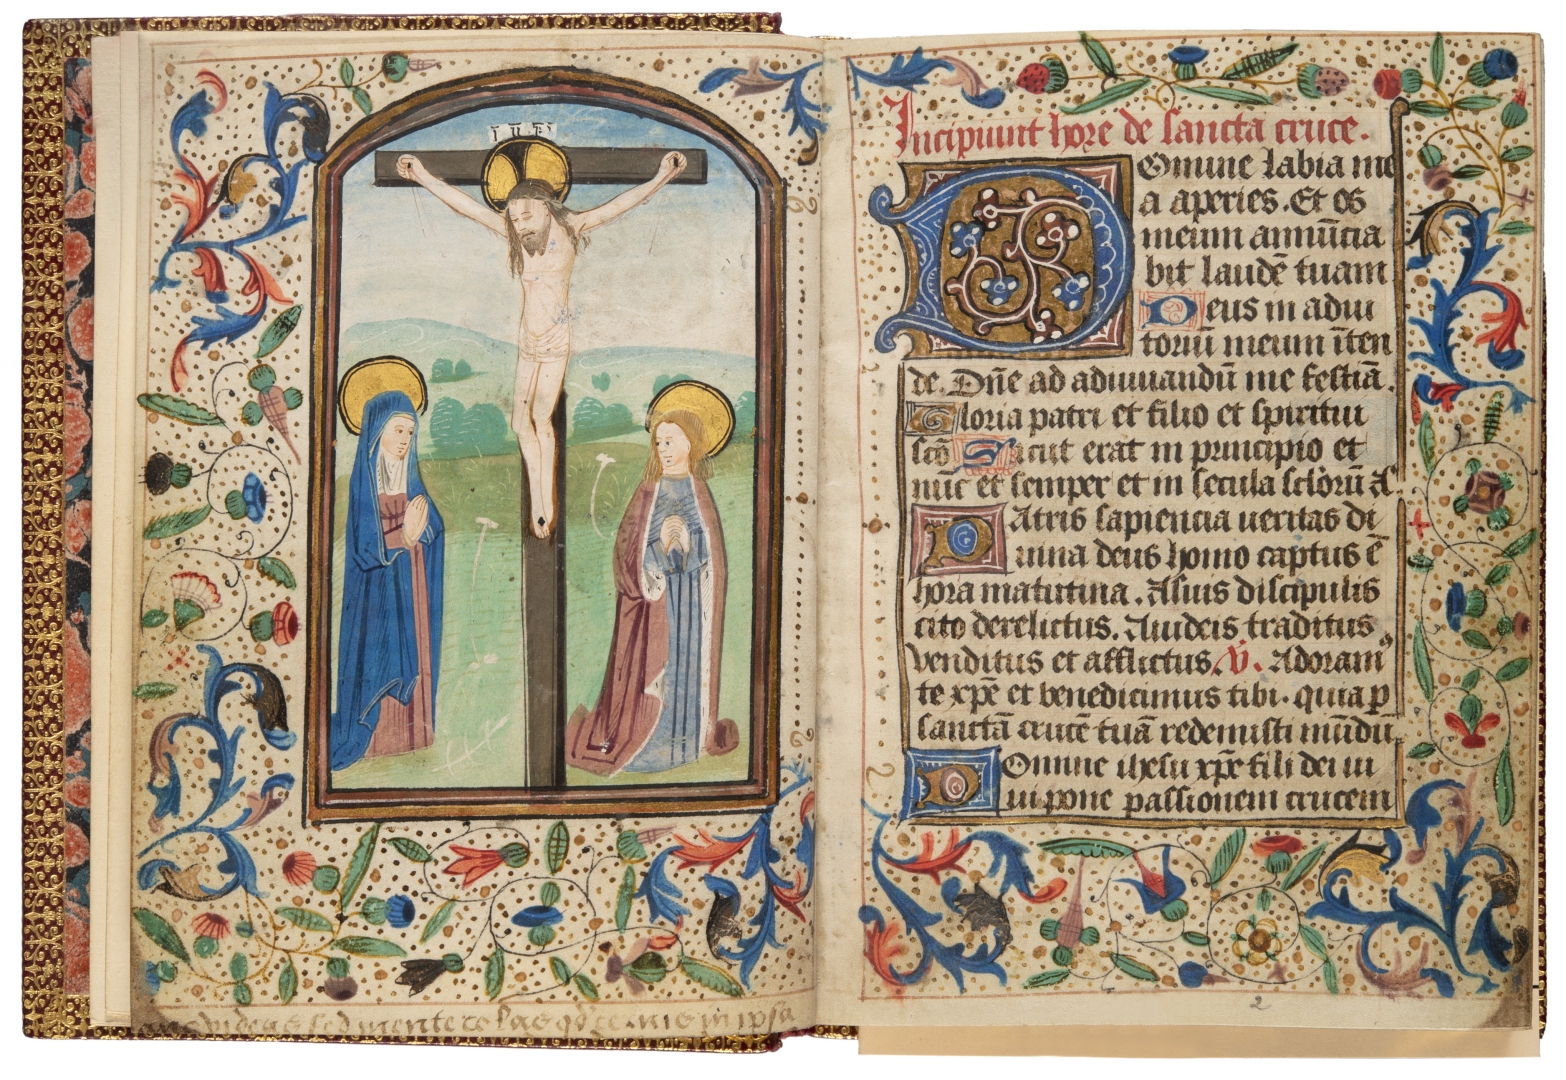 INRI
ans videas sed mente colas qd cernis in ipsa
Incipiunt hore de sancta cruce.
Domine labia me
a aperies. Et os
meum annūcia
bit laudē tuam
Deus in adiu
toriū meum intēn
de. Dn̄e ad adiuuandū me festiā.
Gloria patri et filio et spiritui
scō Sicut erat in principio et
nūc et semper et in secula sc̄lorū A
Patris sapiencia ueritas di
uina deus homo captus ē
hora matutina. A suis discipulis
cito derelictus. A iudeis traditus
venditus et afflictus. V. Adoram
te xp̄e et benedicimus tibi. quia p
sanctā crucē tuā redemisti mūdū
Domine ihesu xp̄e fili dei ui
ui pone passionem crucem
2